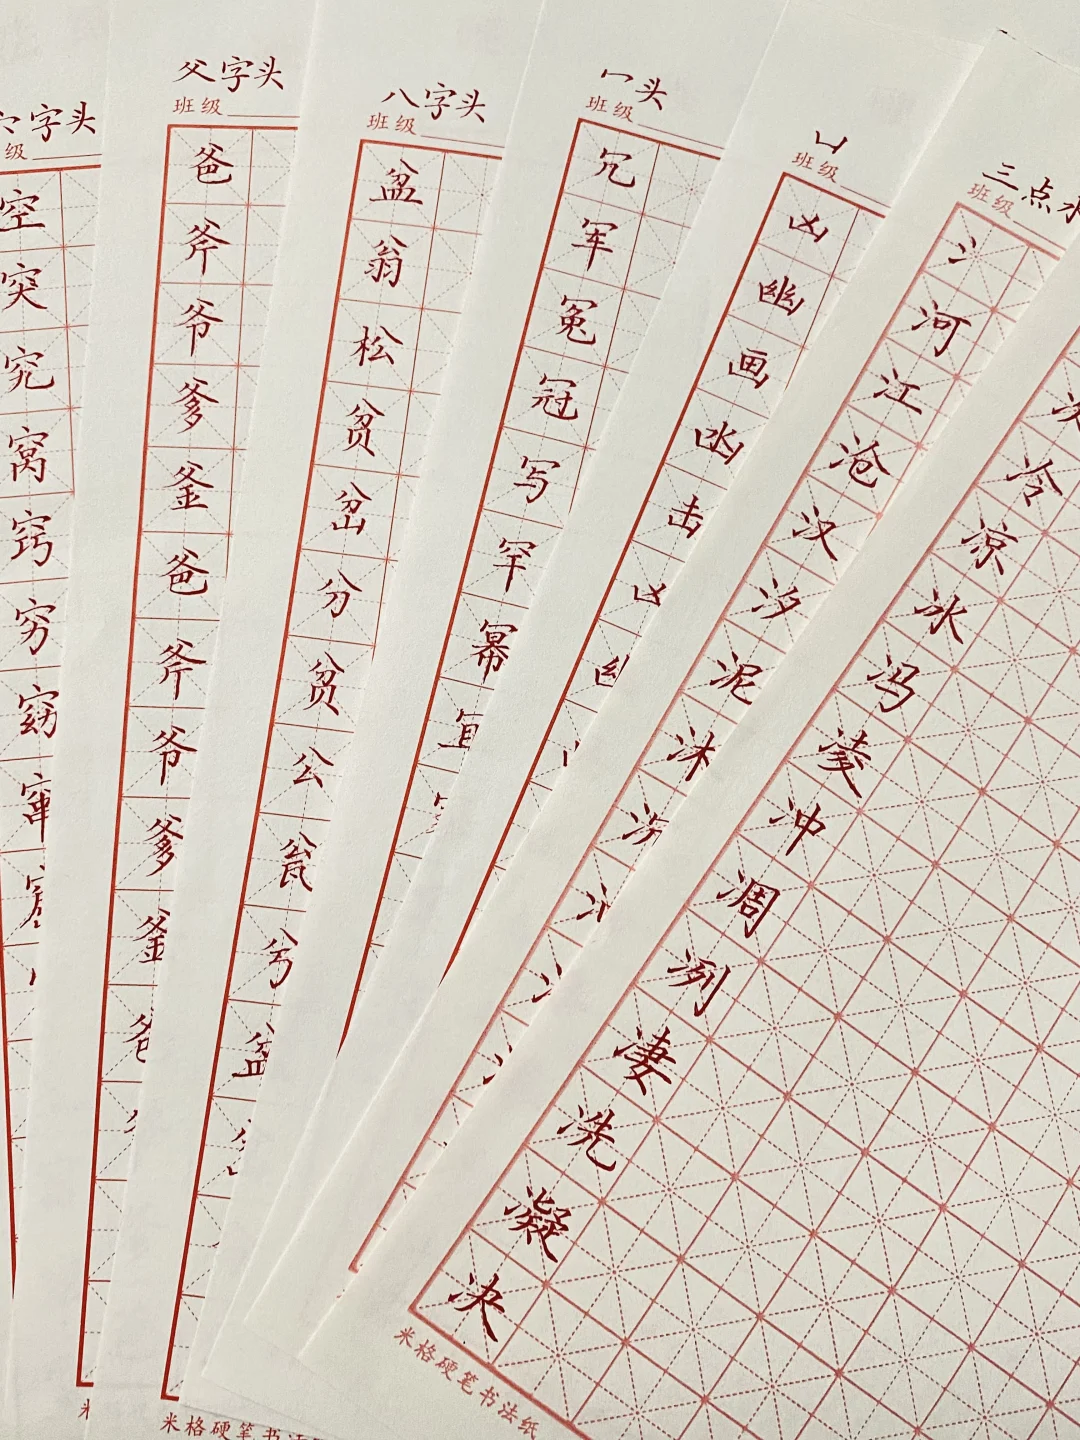 字头
级
空
突
究
窝
窍
穷
窈
窜
父字头
班级
爸
斧
爷
爹
釜
爸
斧
爷
爹
釜
爸
八字头
班级
盆
翁
松
贫
岔
分
贫
公
瓮
兮
盆
冖头
班级
冗
军
冤
冠
写
罕
幂
凵
班级
凶
幽
画
凼
击
凶
幽
三点水
班级
氵
河
江
沧
汉
汐
泥
沐
次
冷
凉
冰
冯
凌
冲
凋
冽
凄
冼
凝
决
米格硬笔书法纸
米格硬笔书法